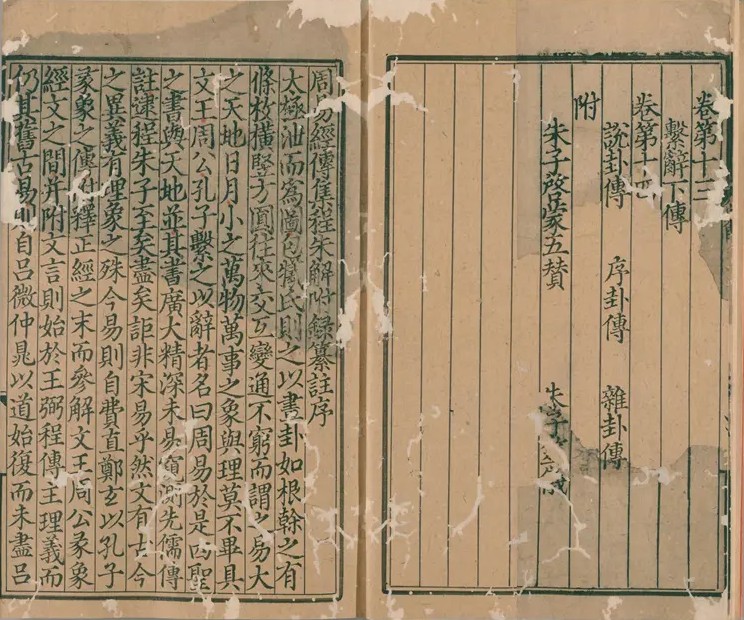 卷第十三
繫辭下傳
卷第十四
說卦傳 序卦傳 雜卦傳
附
朱子啓蒙五贊 朱子
周易經傳集程朱解附録纂註序
太極泄而爲圖包犧氏則之以畫卦如根幹之有
條枚橫竪方圓往來交互變通不窮而謂之易大
之天地日月小之萬物萬事之象與理莫不畢具
文王周公孔子繫之以辭者名曰周易於是四聖
之書與天地並其書廣大精深未易窺測先儒傳
註逮程朱子至矣盡矣詎非宋易乎然文有古今
之異義有理象之殊今易則自費直鄭玄以孔子
彖象之傳附釋正經之末而參解文王周公彖象
經文之間并附文言則始於王弼程傳主理義而
仍其舊古易則自呂微仲晁以道始復而未盡呂